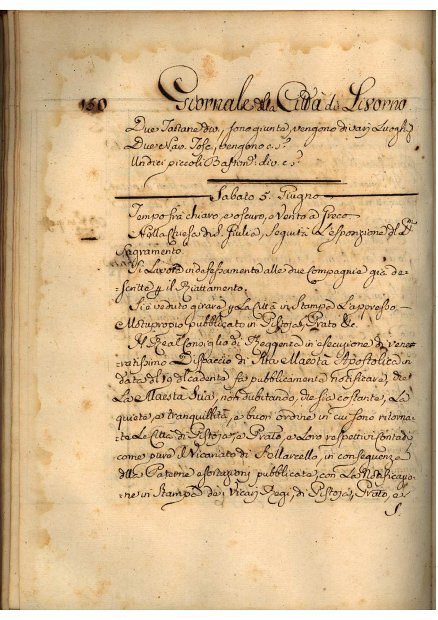 150 Giornale della Città di Livorno
Due Tartane div. sono giunte, vengono di varj Luoghi
Due Nav. Tosc. vengono c. s.ª
Undici piccoli Bastim.ti div. c. s.ª
Sabato 5. Giugno
Tempo frà chiaro, e oscuro, e Vento a Greco
Nella Chiesa di S. Giulia, seguità L'esposizione del
Sagramento
Si Lavora indefessamente alle due Compagnie già de-
scritte p. il Riattamento.
Si è veduto girare p. La Città in Stampa L'appresso
Motuproprio pubblicato in Pistoja, Prato &c.
Il Real Consiglio di Reggenza in esecuzione di vene-
ratissimo Dispaccio di Sua Maestà Apostolica in
data del 10 del cadente fà pubblicamente notificare, che
La Maestà Sua, non dubitando, che sia costante, La
quiete, e tranquillità, e buon ordine in cui sono ritorna-
te Le Città di Pistoja, e Prato, e Loro respettivi Contadi
come pure il Vicariato di Pollarcello, in consequenza
delle Paterne esortazioni pubblicate, con La Notificazio-
ne in Stampa de' Vicarj Regj, di Pistoja, Prato, e
S.